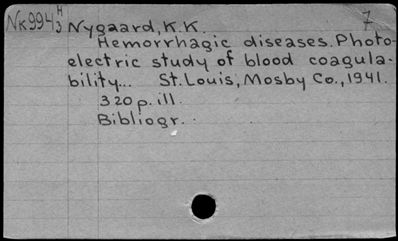 Nk994 H3 Nygaard, K.K. 7
Hemorrhagic diseases. Photo-
electric study of blood coagula-
bility... St. Louis, Mosby Co., 1941.
320 p. ill.
Bibliogr.